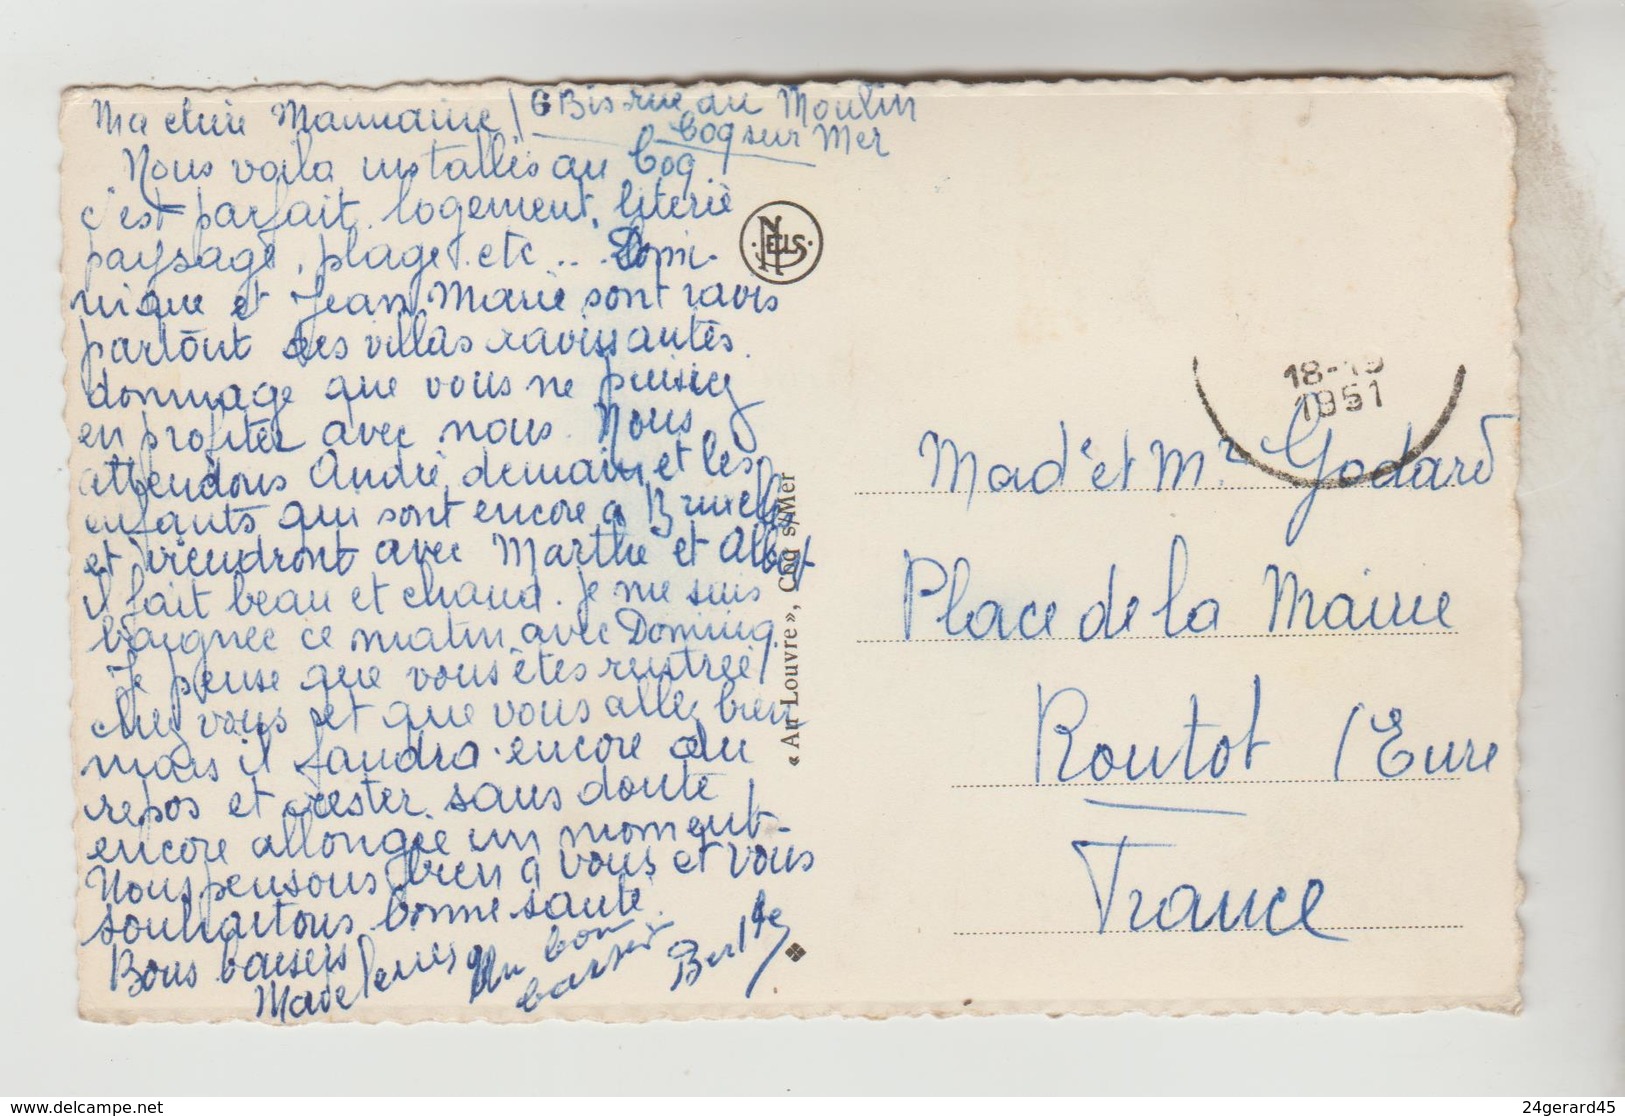 Ma chère Mamaine / 6 Bis rue du Moulin
Coq sur Mer
Nous voila installés au Coq
c'est parfait. logement, literie
paysage, plage. etc ... Domi-
nique et Jean Marie sont ravis
partout des villas ravissantes.
dommage que vous ne puissiez
en profiter avec nous. Nous
attendons André demain et les
enfants qui sont encore à Bruxelles
et viendront avec Marthe et Albert
il fait beau et chaud. je me suis
baignée ce matin avec Dominiq.
Je pense que vous êtes rentrée
chez vous et que vous allez bien
mais il faudra encore du
repos et rester sans doute
encore allongée un moment-
Nous pensons bien à vous et vous
souhaitons bonne santé.
Bons baisers
Madeleine
Un bon
baiser
NELS
« Au Louvre », Coq s/Mer
18-19
1951
Mad^e et M^r Godard
Place de la Mairie
Routot (Eure
France
delcampe.net
24gerard45